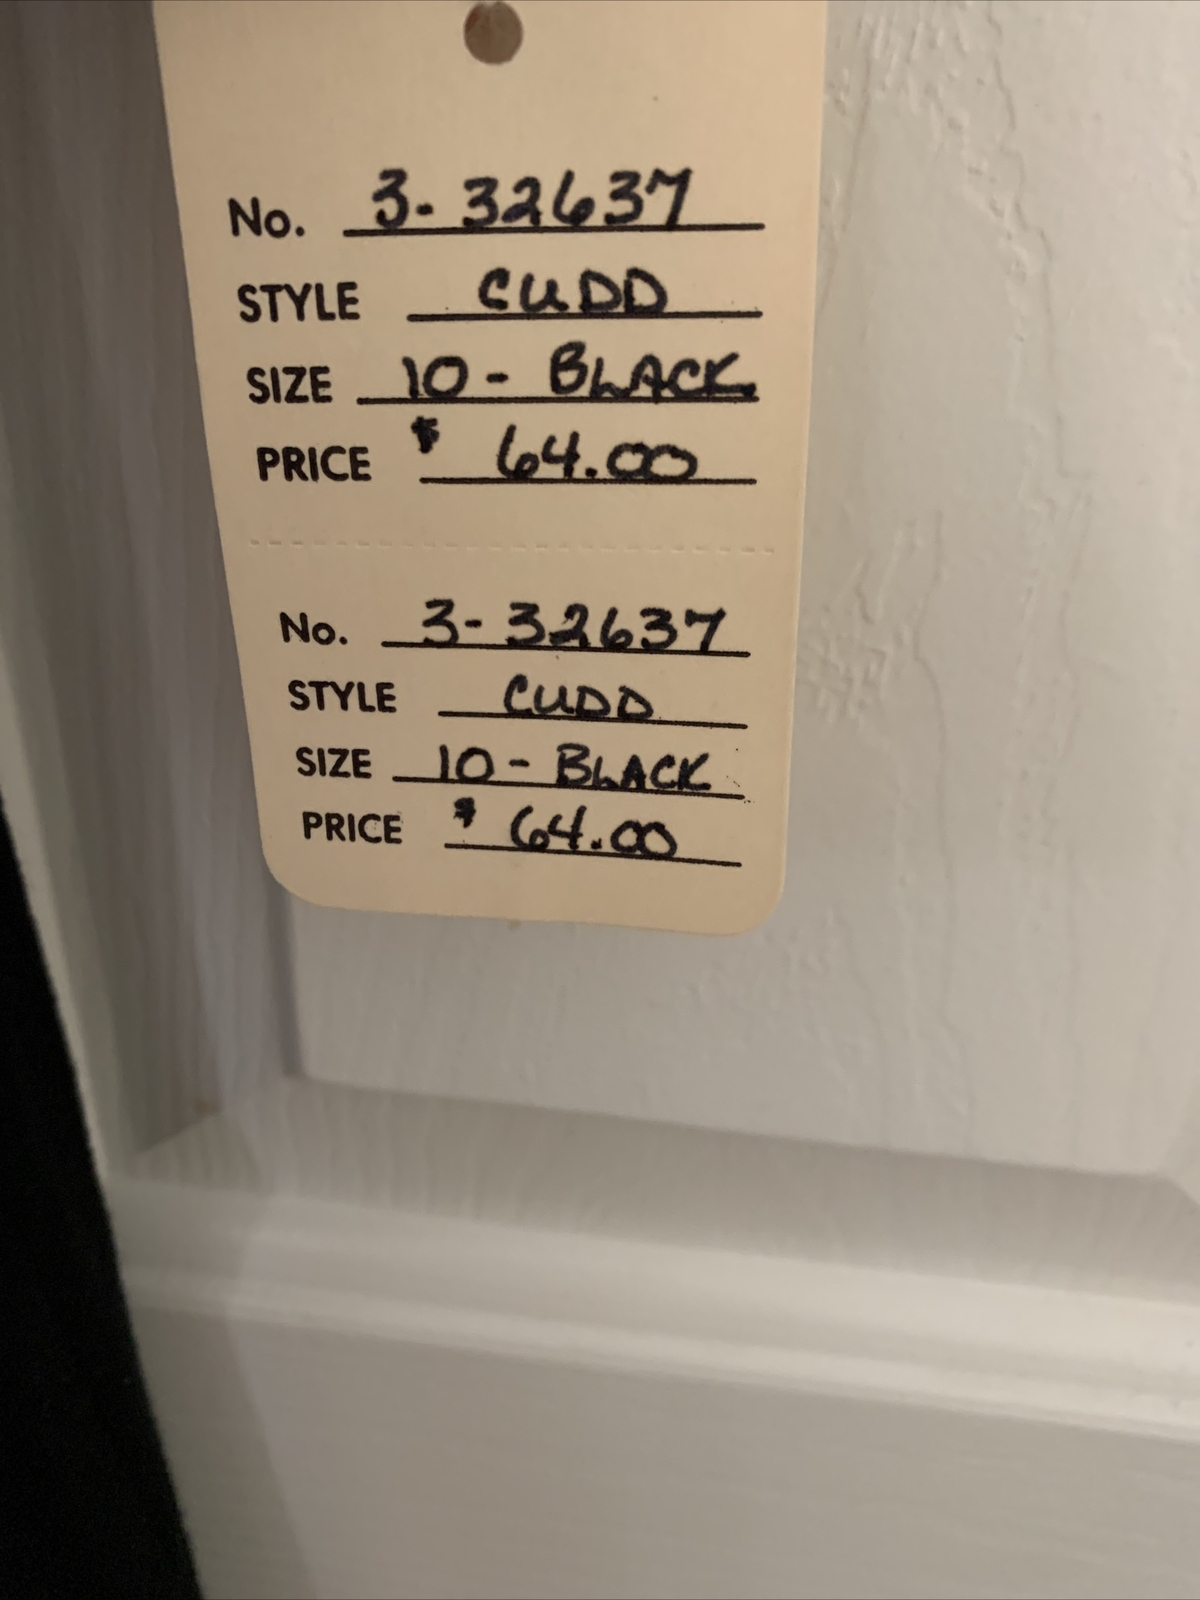 No. 3- 32637
STYLE CUDD
SIZE 10 - BLACK
PRICE $ 64.00
No. 3- 32637
STYLE CUDD
SIZE 10 - BLACK
PRICE $ 64.00